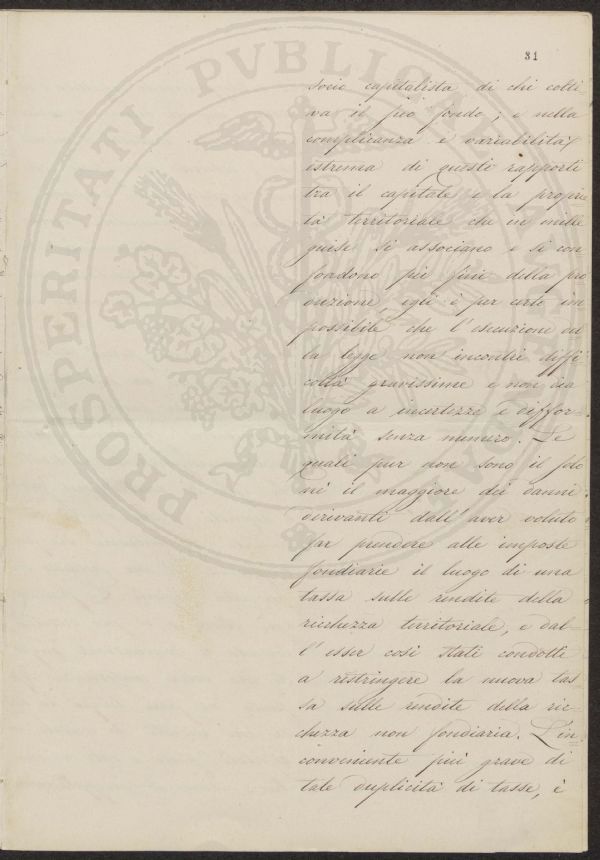 31
PROSPERITATI PVBLIC
socio capitalista di chi colti
va il suo fondo; e nella
complicanza e variabilità
estrema di questi rapporti
tra il capitale e la proprie
tà territoriale che in mille
guise si associano e si con
fondono pei fini della pro
duzione, egli è per certo im
possibile che l'esecuzione del
la legge non incontri diffi
coltà gravissime e non dia
luogo a incertezze e diffor-
mità senza numero. Le
quali pur non sono il solo
nè il maggiore dei danni
derivanti dall'aver voluto
far prendere alle imposte
fondiarie il luogo di una
tassa sulle rendite della
ricchezza territoriale, e dal-
l'esser così stati condotti
a restringere la nuova tas-
sa sulle rendite della ric-
chezza non fondiaria. L'in-
conveniente più grave di
tale duplicità di tasse, è